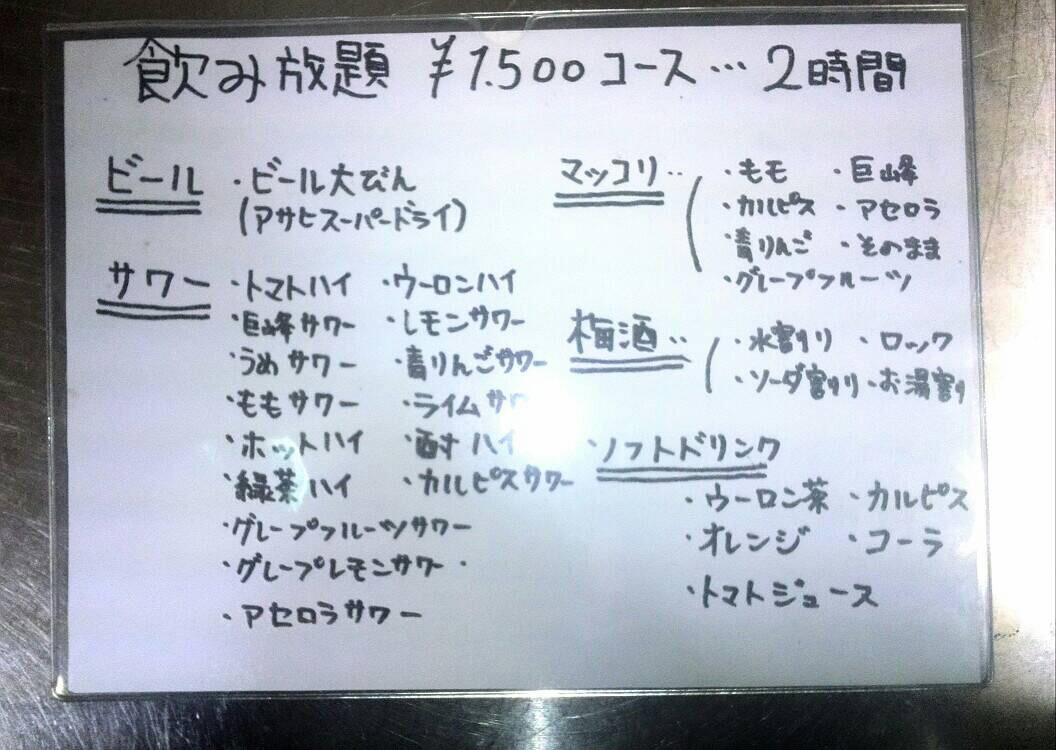 飲み放題 ¥1.500コース… 2時間
ビール ・ビール大びん
(アサヒスーパードライ)
サワー ・トマトハイ ・ウーロンハイ
・巨峰サワー ・レモンサワー
・うめサワー ・青りんごサワー
・ももサワー ・ライムサワ
・ホットハイ ・酎ハイ
・緑茶ハイ ・カルピスサワー
・グレープフルーツサワー
・グレープレモンサワー・
・アセロラサワー
マッコリ‥ ・もモ ・巨峰
・カルピス ・アセロラ
・青りんご ・そのまま
・グレープフルーツ
梅酒‥ ・水割り ・ロック
・ソーダ割り ・お湯割り
・ソフトドリンク
・ウーロン茶 ・カルピス
・オレンジ ・コーラ
・トマトジュース